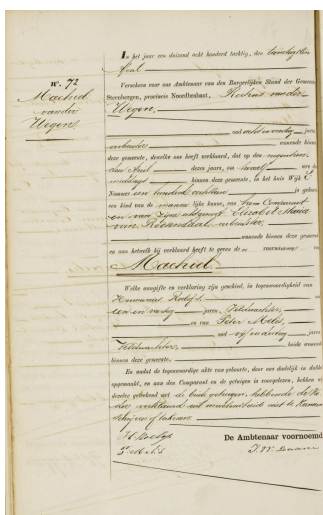 N°. 72
Machiel
van der
Wegen
In het jaar een duizend acht honderd tachtig, den twintigsten
Juli
Verscheen voor ons Ambtenaar van den Burgerlijken Stand der Gemeente
Steenbergen, provincie Noordbrabant, van der
Wegen,
oud acht en veertig jaren
arbeider wonende binnen
deze gemeente, dewelke ons heeft verklaard, dat op den negentien
den Juli dezes jaars, des
middags binnen deze gemeente, in het huis Wijk
Nummer een honderd achttien is geboren
een kind van de mannelijke kunne, van hem Comparant
en van zijne echtgenoot Elisabet Maria
van Roosendaal, arbeidster,
wonende binnen deze gemeente
en aan hetwelk hij verklaard heeft te geven de voornaam
Machiel.
Welke aangifte en verklaring zijn geschied, in tegenwoordigheid van
Hermanus
een en veertig jaren, Veldwachter,
en van Peter Melis,
oud vijftig jaren
Veldwachter, beide wonende
binnen deze gemeente.
En nadat de tegenwoordige akte van geboorte, daar van dadelijk in dubbel
opgemaakt, en aan den Comparant en de getuigen is voorgelezen, hebben wij
dezelve geteekend met de beide getuigen, hebbende de
verklaard uit onwetendheid niet te kunnen
schrijven of teekenen
De Ambtenaar voornoemd
P. Melis